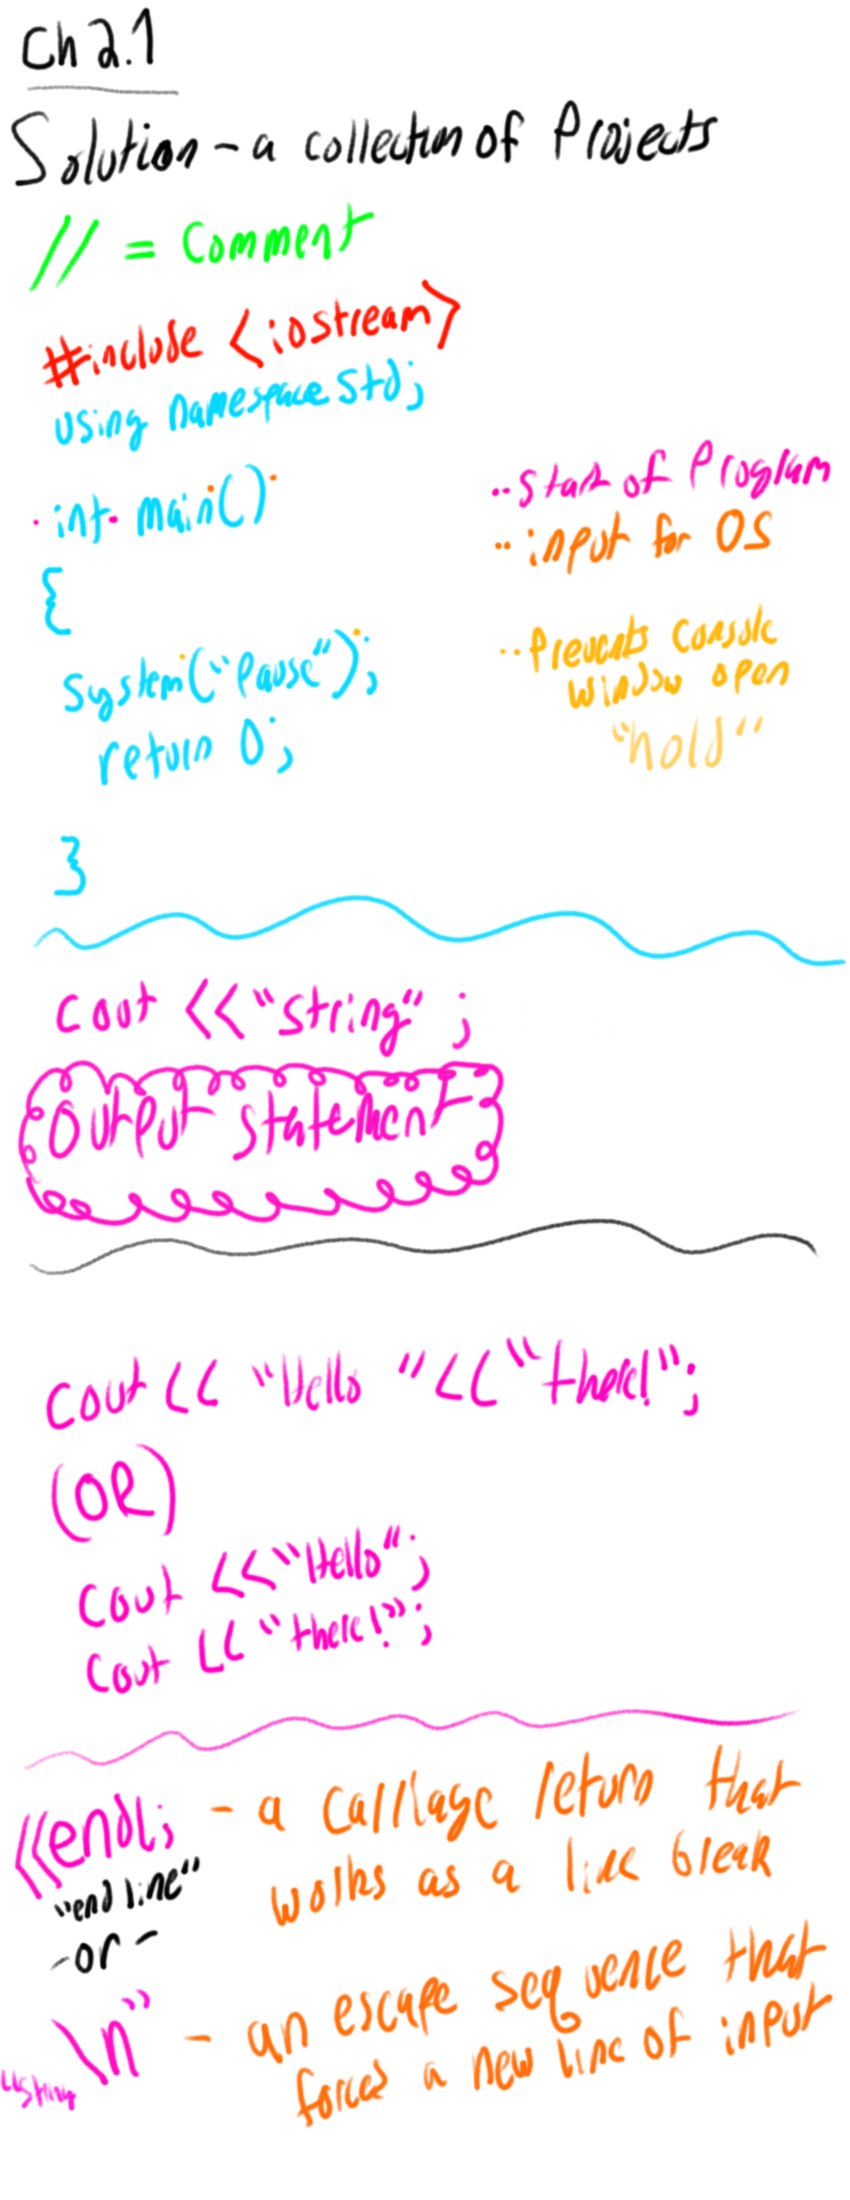 Ch 2.1
Solution - a collection of Projects
// = Comment
#include <iostream>
using namespace std;
int main()
·· start of Program
·· input for OS
{
system("Pause");
·· Prevents Console
window open
"hold"
return 0;
}
cout <<"string" ;
output statement
cout << "Hello "<< "there!";
(OR)
cout <<"Hello";
cout << "there!";
<<endl; - a carriage return that
works as a line break
"end line"
- or -
"string \n" - an escape sequence that
forces a new line of input